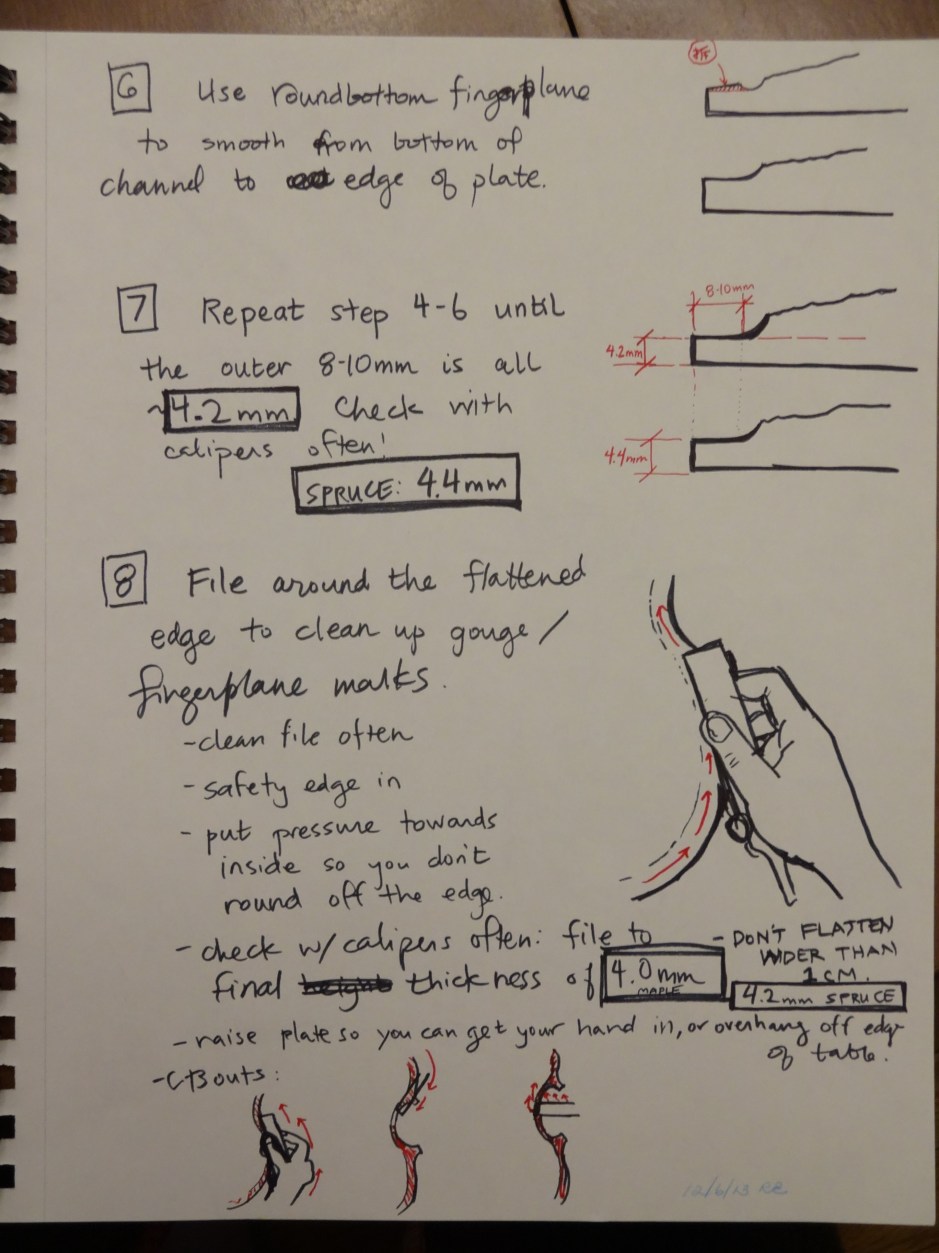 6 Use roundbottom fingerplane
to smooth from bottom of
channel to edge of plate.
7 Repeat step 4-6 until
the outer 8-10mm is all
~4.2mm Check with
calipers often!
SPRUCE: 4.4mm
8-10mm
4.2mm
4.4mm
8 File around the flattened
edge to clean up gouge/
fingerplane marks.
- clean file often
- safety edge in
- put pressure towards
inside so you don't
round off the edge.
- check w/ calipers often: file to
final height thickness of 4.0mm
MAPLE
- DON'T FLATTEN
WIDER THAN
1CM.
4.2mm SPRUCE
- raise plate so you can get your hand in, or overhang off edge
of table.
bouts:
12/6/13 RR